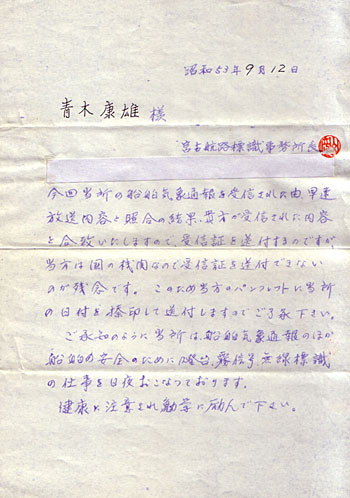 昭和53年9月12日
青木康雄 様
宮古航路標識事務所長
今回当所の船舶気象通報を受信された由、早速
放送内容と照合の結果、貴方が受信された内容
と合致いたしますので、受信証を送付するのですが
当方は国の機関なので受信証を送付できない
のが残念です。このため当方のパンフレットに当所
の日付を捺印して送付しますのでご了承下さい。
ご承知のように当所は、船舶気象通報のほか
船舶の安全のために燈台、霧信号、無線標識
の仕事を日夜おこなっております。
健康に注意され勉学に励んで下さい。